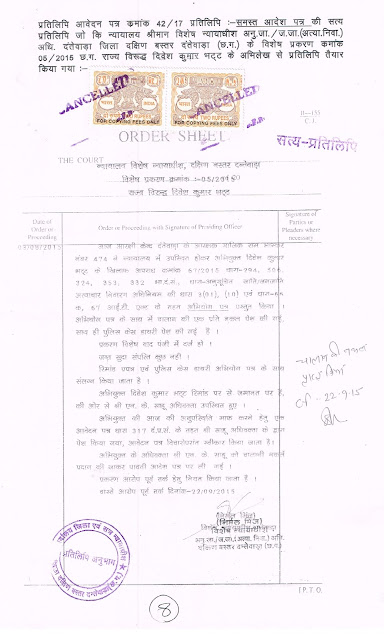 प्रतिलिपि आवेदन पत्र क्रमांक 42/17 प्रतिलिपि :-समस्त आदेश पत्र की सत्य
प्रतिलिपि जो कि न्यायालय श्रीमान विशेष न्यायाधीश अनु.जा./ज.जा.(अत्या.निवा.)
अधि. दंतेवाड़ा जिला दक्षिण बस्तर दंतेवाड़ा (छ.ग.) के विशेष प्रकरण क्रमांक
05/2015 छ.ग. राज्य विरूद्ध दिवेश कुमार भट्ट के अभिलेख से प्रतिलिपि तैयार
किया गया :-
CANCELLED
CANCELLED
TWO RUPEES
FOR COPYING FEES ONLY
FOR COPYING FEES ONLY
II-155
C.J.
ORDER SHEET
सत्य-प्रतिलिपि
THE COURT
न्यायालय विशेष न्यायाधीश, दक्षिण बस्तर दन्तेवाड़ा
विशेष प्रकरण क्रमांक :-05/2015
राज्य विरूद्ध दिवेश कुमार भट्ट
Date of Order or Proceeding
Order or Proceeding with Signature of Presiding Officer
Signature of Parties or Pleaders where necessary
आज आरक्षी केन्द्र दंतेवाड़ा के
नंबर 474 ने न्यायालय में उपस्थित होकर अभियुक्त दिवेश कुमार
भट्ट के खिलाफ अपराध क्रमांक 67/2015 धारा-294, 506,
353, 332 भा.दं.सं., धारा-अनुसूचित जाति/जनजाति
अत्याचार निवारण अधिनियम की धारा
67 आई.टी. एक्ट के तहत अभियोग पत्र प्रस्तुत किया ।
अभियोग पत्र के साथ में चालान की एक प्रति नकल पेश की गई,
साथ ही पुलिस केस डायरी पेश की गई है ।
प्रकरण विशेष वाद पंजी में दर्ज हो ।
जप्त सुदा संपत्ति कुछ नहीं ।
रिमांड प्रपत्र एवं पुलिस केस डायरी अभियोग पत्र के साथ
संलग्न किया जाता है ।
अभियुक्त दिवेश कुमार भट्ट रिमांड पर से जमानत पर हैं,
की ओर से श्री एन. के. साहू अधिवक्ता उपस्थित हुए ।
अभियुक्त की आज की अनुपस्थिति माफ करने हेतु एक
आवेदन पत्र धारा 317 दं.प्र.सं. के तहत श्री साहू अधिवक्ता के द्वारा
पेश किया गया, आवेदन पत्र विचारोपरांत स्वीकार किया जाता है।
अभियुक्त के अधिवक्ता श्री एन. के. साहू को चालान नकल
प्रदान की जाकर पावती आदेश पत्र पर ली गई ।
प्रकरण आरोप पूर्व तर्क हेतु नियत किया जाता है ।
वास्ते आरोप पूर्व तर्क दिनांक-22/09/2015
चालान की नकल
प्राप्त किया
22-9-15
(निर्मल मिंज)
विशेष न्यायाधीश
अनु.जा./ज.जा.(अत्या. निवा.) अधि.
दक्षिण बस्तर दन्तेवाड़ा(छ.ग.)
प्रतिलिपि अनुभाग
8
P.T.O.